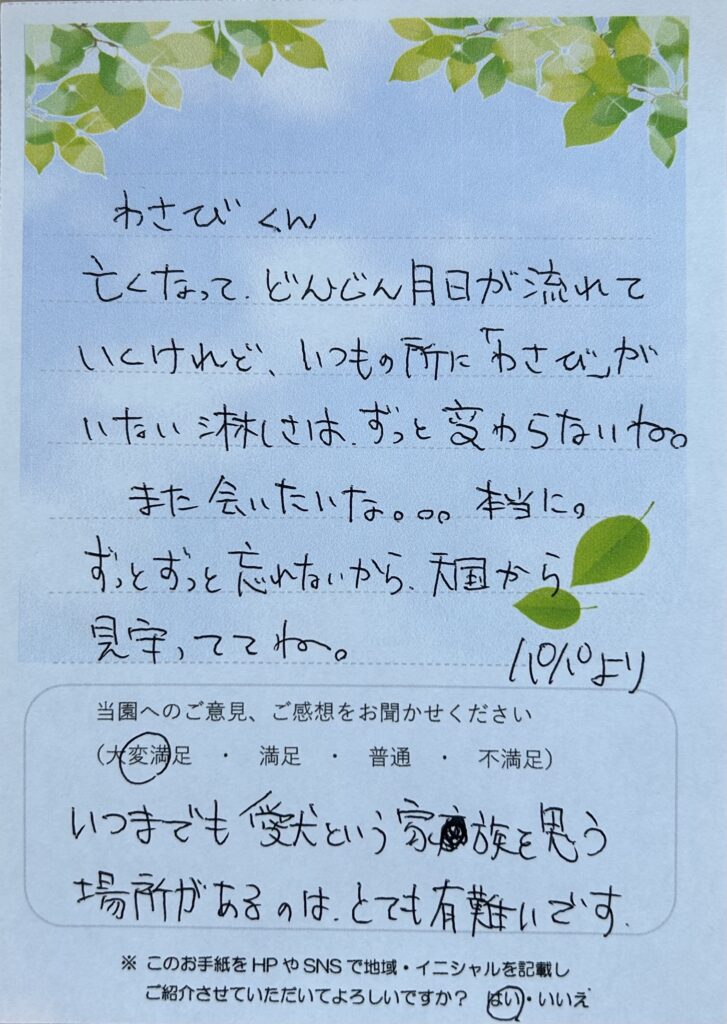 わさびくん
亡くなって、どんどん月日が流れて
いくけれど、いつもの所に「わさび」が
いない淋しさは、ずっと変わらないね。
また会いたいな。。。本当に。
ずっとずっと忘れないから、天国から
見守っててね〜。
パパより
当園へのご意見、ご感想をお聞かせください
(大変満足 ・ 満足 ・ 普通 ・ 不満足)
いつまでも愛犬という家族を思う
場所があるのは、とても有難いです.
※ このお手紙をHPやSNSで地域・イニシャルを記載し
ご紹介させていただいてよろしいですか? はい・いいえ